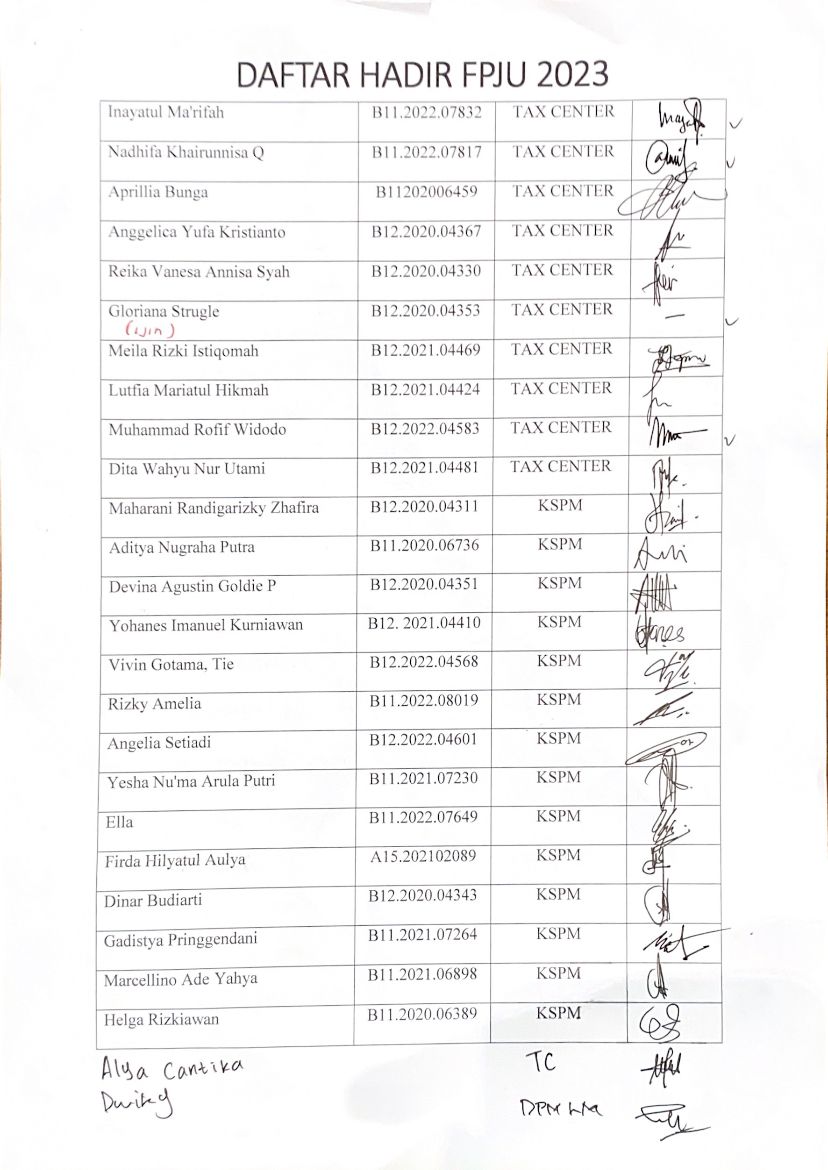 DAFTAR HADIR FPJU 2023
Inayatul Ma'rifah B11.2022.07832 TAX CENTER
Nadhifa Khairunnisa Q B11.2022.07817 TAX CENTER
Aprillia Bunga B11202006459 TAX CENTER
Anggelica Yufa Kristianto B12.2020.04367 TAX CENTER
Reika Vanesa Annisa Syah B12.2020.04330 TAX CENTER
Gloriana Strugle B12.2020.04353 TAX CENTER
(ijin)
Meila Rizki Istiqomah B12.2021.04469 TAX CENTER
Lutfia Mariatul Hikmah B12.2021.04424 TAX CENTER
Muhammad Rofif Widodo B12.2022.04583 TAX CENTER
Dita Wahyu Nur Utami B12.2021.04481 TAX CENTER
Maharani Randigarizky Zhafira B12.2020.04311 KSPM
Aditya Nugraha Putra B11.2020.06736 KSPM
Devina Agustin Goldie P B12.2020.04351 KSPM
Yohanes Imanuel Kurniawan B12. 2021.04410 KSPM
Vivin Gotama, Tie B12.2022.04568 KSPM
Rizky Amelia B11.2022.08019 KSPM
Angelia Setiadi B12.2022.04601 KSPM
Yesha Nu'ma Arula Putri B11.2021.07230 KSPM
Ella B11.2022.07649 KSPM
Firda Hilyatul Aulya A15.202102089 KSPM
Dinar Budiarti B12.2020.04343 KSPM
Gadistya Pringgendani B11.2021.07264 KSPM
Marcellino Ade Yahya B11.2021.06898 KSPM
Helga Rizkiawan B11.2020.06389 KSPM
Alya Cantika TC
Dwiky DPM KM